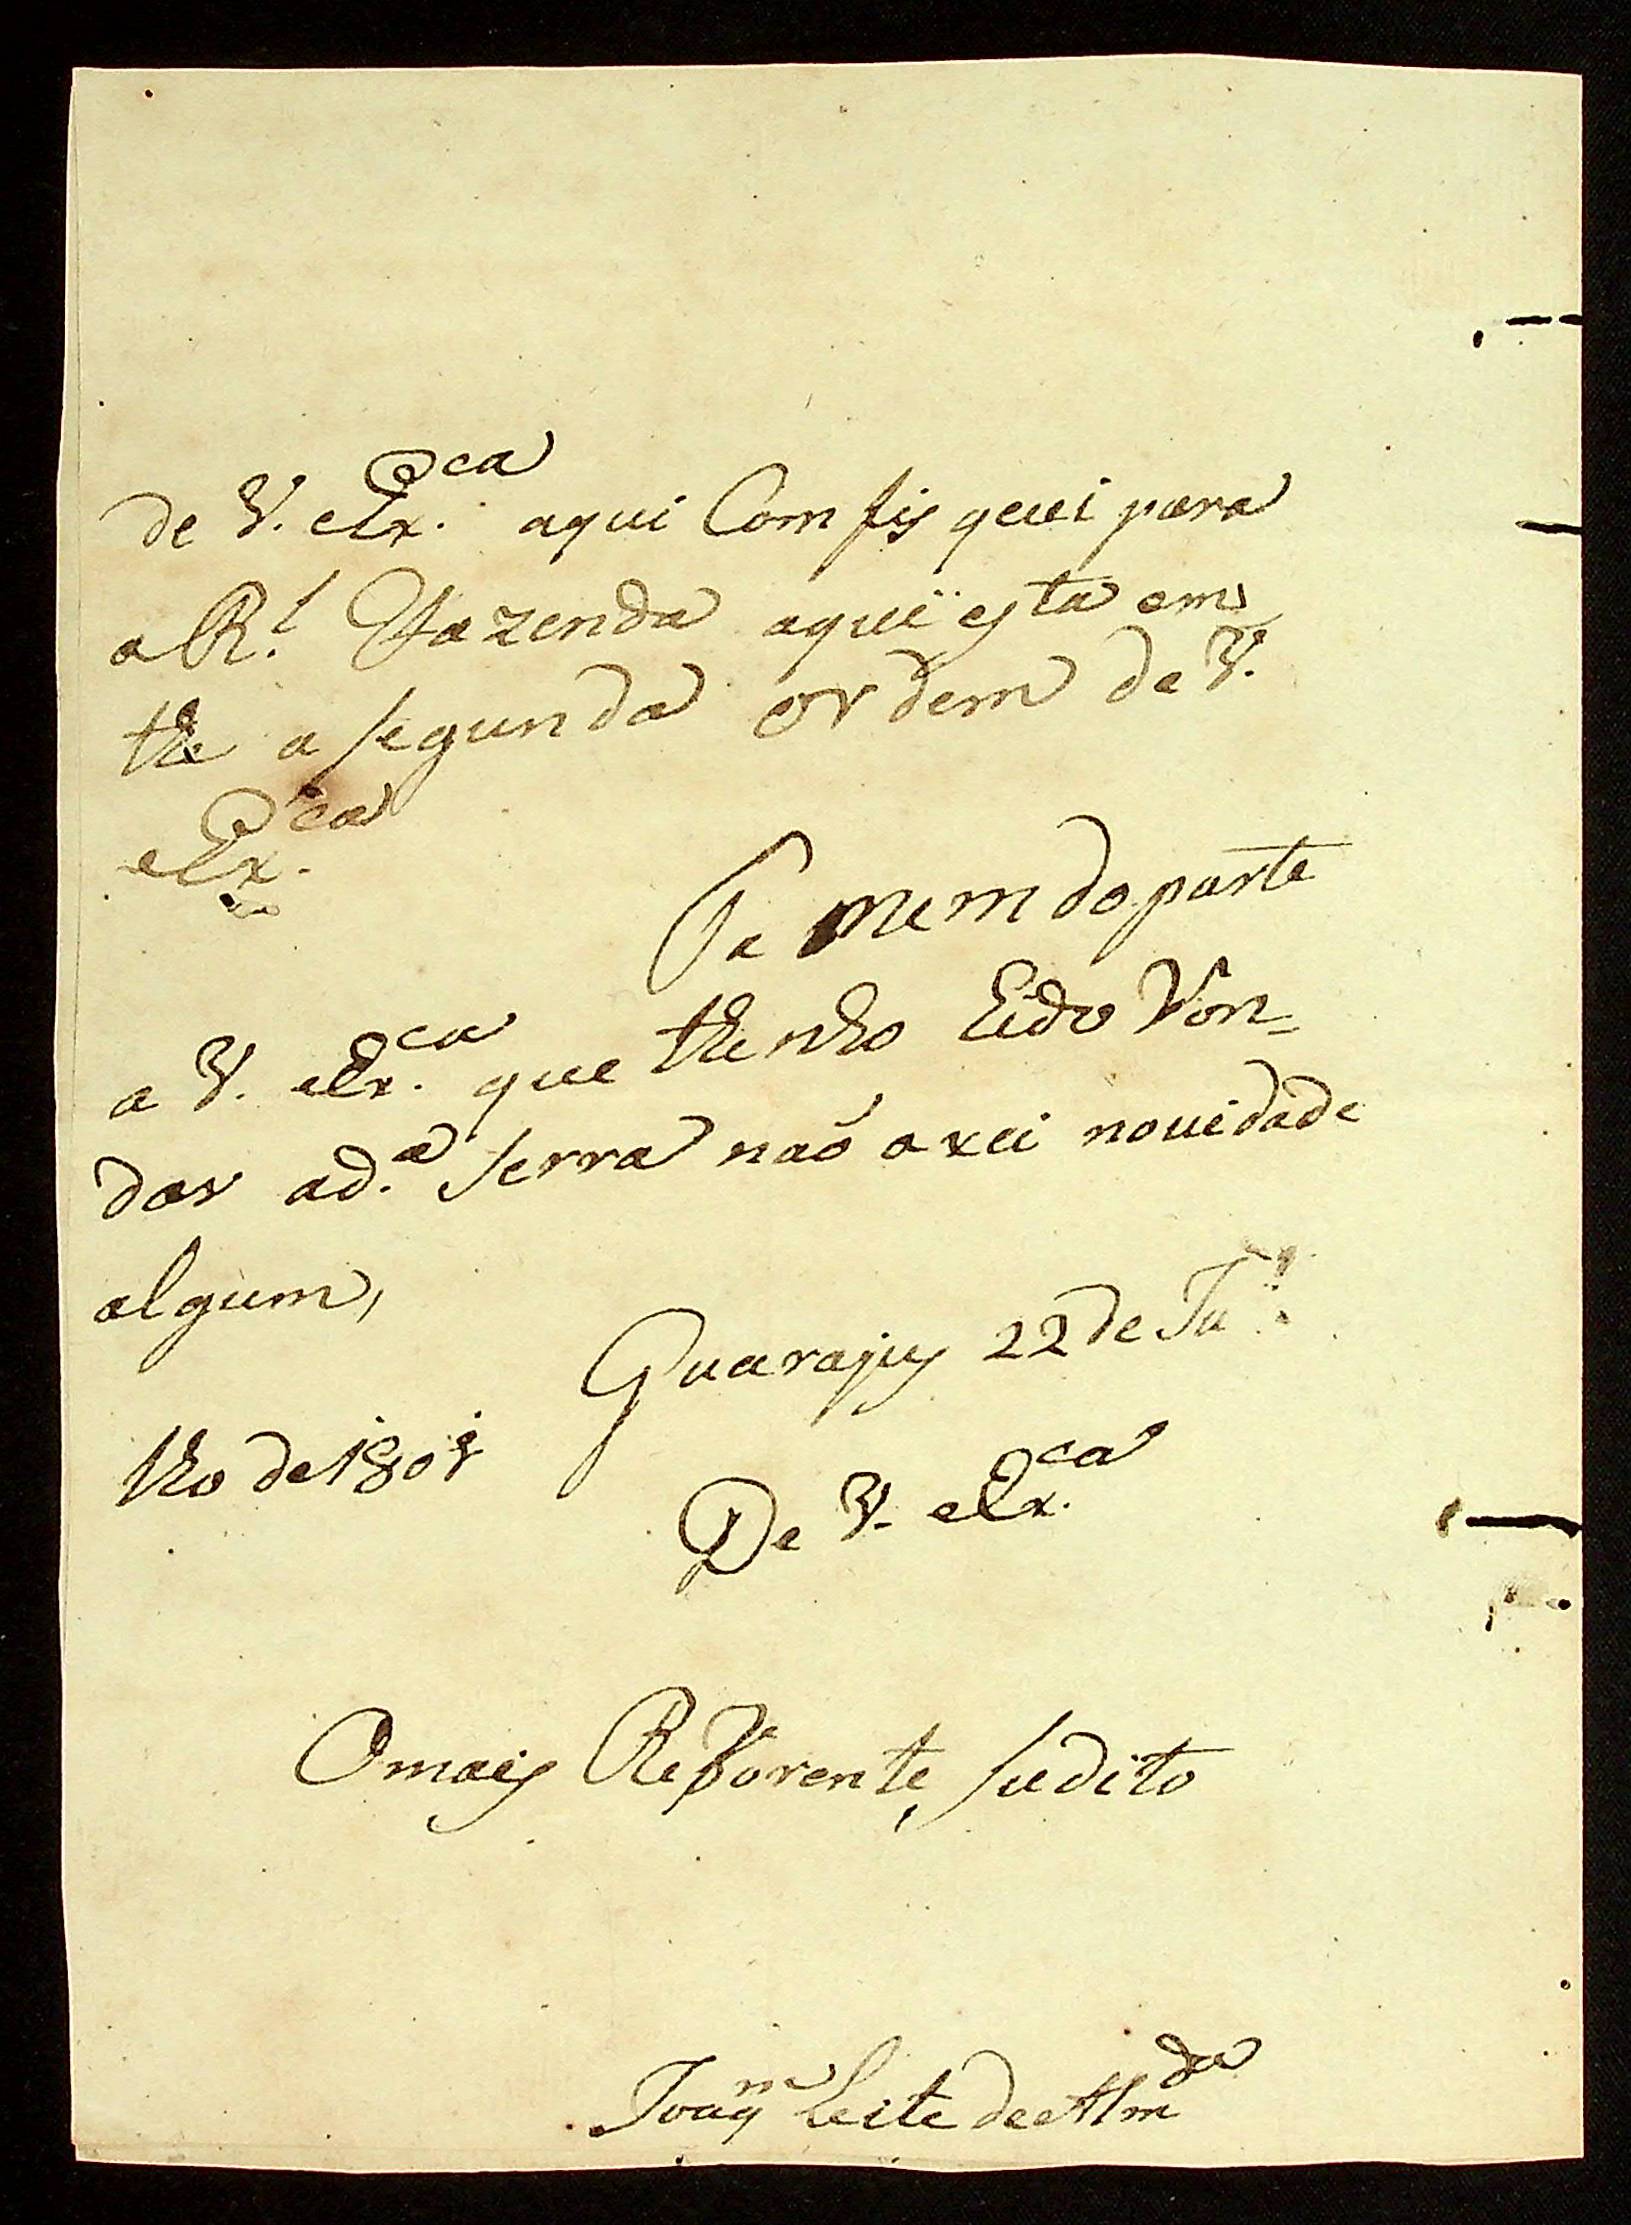 de V. Ex.ca aqui Comfisquei para
a R.l Fazenda aqui esta em
the a segunda ordem de V.
Ex.ca
Ta mem do parte
a V. Ex.ca que thenho hido Ron=
dar a d.a serra naõ axei novidade
algum,
Guarajus 22 de Ju
lho de 180
De V. Ex.ca
O mais Reverente sudito
Joaqm Leite de Almda